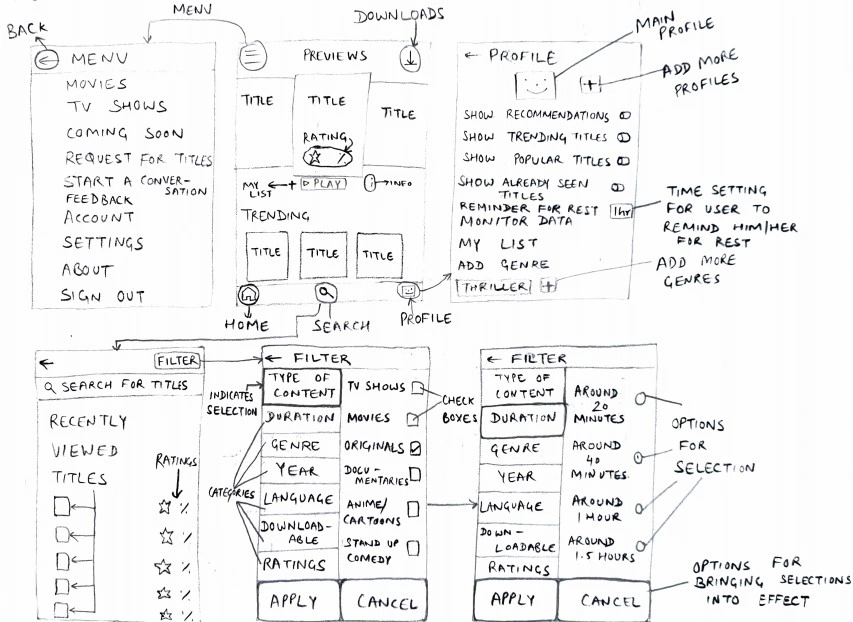 BACK
MENU
DOWNLOADS
← MENU
MOVIES
TV SHOWS
COMING SOON
REQUEST FOR TITLES
START A CONVER-
SATION
FEEDBACK
ACCOUNT
SETTINGS
ABOUT
SIGN OUT
PREVIEWS
TITLE
TITLE
TITLE
RATING
☆ %
MY LIST
+
▷ PLAY
i
INFO
TRENDING
TITLE
TITLE
TITLE
HOME
SEARCH
PROFILE
← PROFILE
MAIN
PROFILE
+
ADD MORE
PROFILES
SHOW RECOMMENDATIONS
SHOW TRENDING TITLES
SHOW POPULAR TITLES
SHOW ALREADY SEEN
TITLES
REMINDER FOR REST
1hr
MONITOR DATA
MY LIST
ADD GENRE
THRILLER
+
TIME SETTING
FOR USER TO
REMIND HIM/HER
FOR REST
ADD MORE
GENRES
←
FILTER
SEARCH FOR TITLES
RECENTLY
VIEWED
TITLES
RATINGS
☆ %
☆ %
☆ %
☆ %
☆ %
← FILTER
INDICATES
SELECTION
CATEGORIES
TYPE OF
CONTENT
DURATION
GENRE
YEAR
LANGUAGE
DOWNLOAD-
ABLE
RATINGS
TV SHOWS
MOVIES
ORIGINALS
DOCU-
MENTARIES
ANIME/
CARTOONS
STAND UP
COMEDY
CHECK
BOXES
APPLY
CANCEL
← FILTER
TYPE OF
CONTENT
DURATION
GENRE
YEAR
LANGUAGE
DOWN-
LOADABLE
RATINGS
AROUND
20
MINUTES
AROUND
40
MINUTES
AROUND
1 HOUR
AROUND
1.5 HOURS
OPTIONS
FOR
SELECTION
APPLY
CANCEL
OPTIONS FOR
BRINGING SELECTIONS
INTO EFFECT